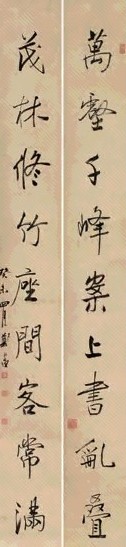 萬壑千峰案上書亂疊
茂林修竹座間客常滿
癸未四月